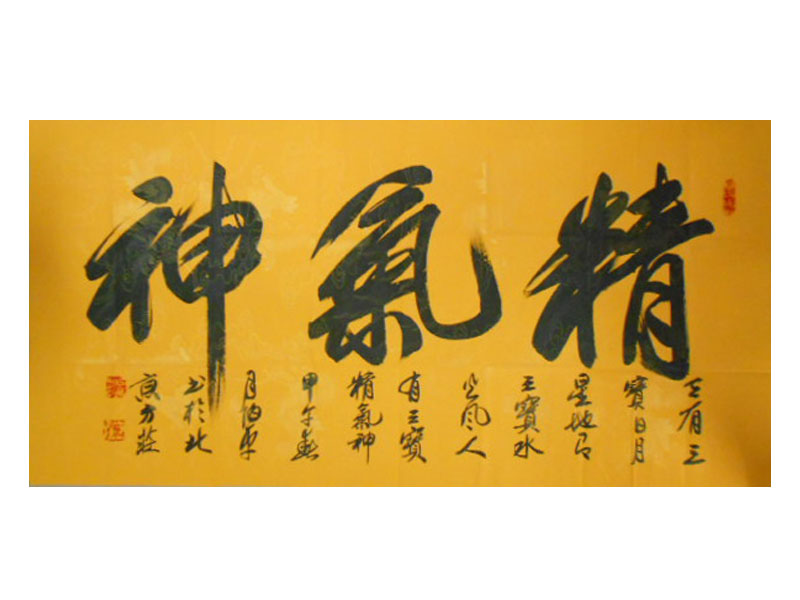 精氣神
天有三
寶日月
星地有
三寶水
火风人
有三寶
精氣神
甲午春
月
书於北
京方莊